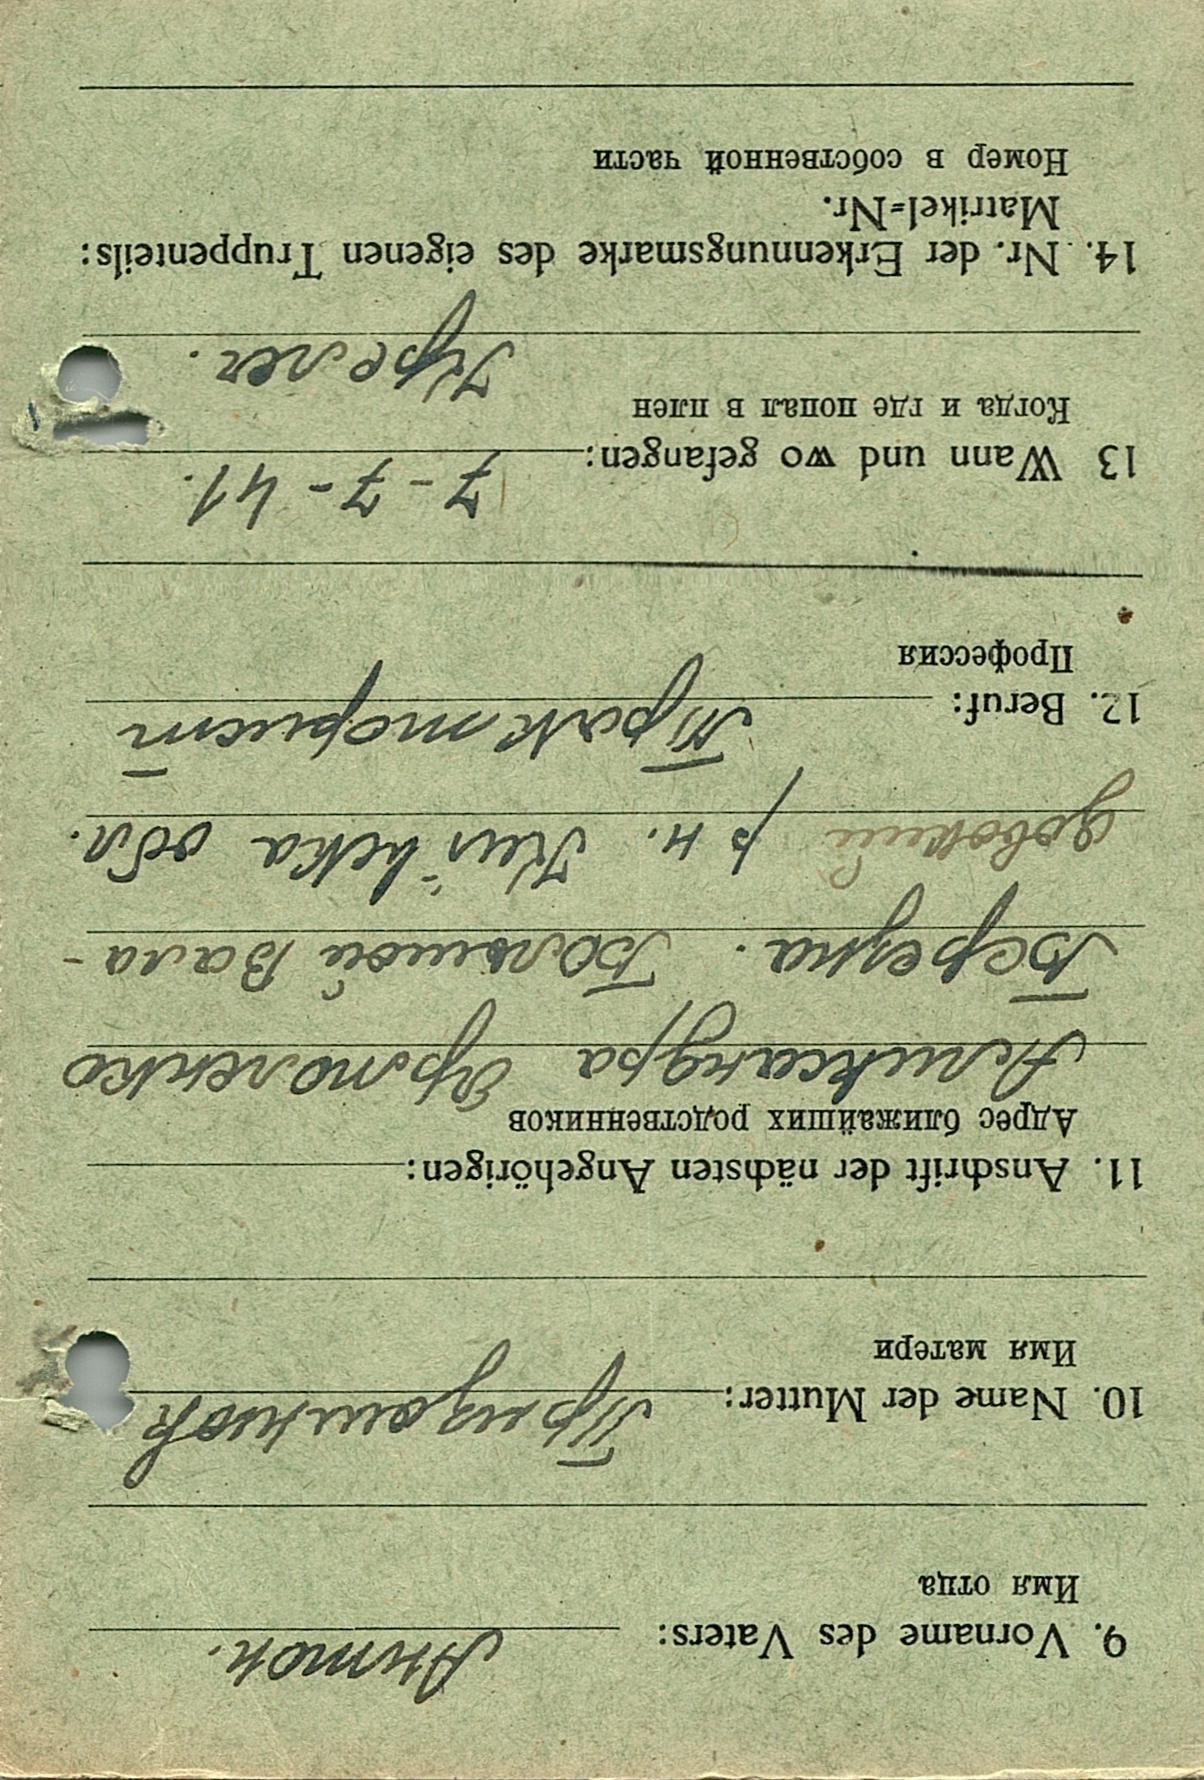 9. Vorname des Vaters: Антон.
Имя отца
10. Name der Mutter:
Имя матери
11. Anschrift der nächsten Angehörigen:
Адрес ближайших родственников
Александра
Большой Вала-
р н. обл.
12. Beruf: Тракторист
Профессия
7-7-41.
13 Wann und wo gefangen:
Когда и где попал в плен
14. Nr. der Erkennungsmarke des eigenen Truppenteils:
Matrikel=Nr.
Номер в собственной части